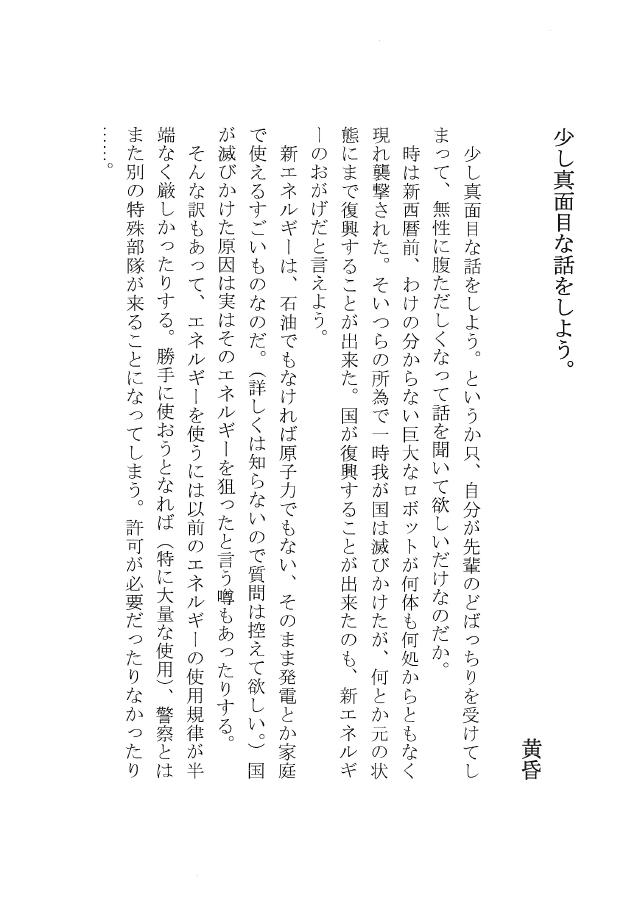 少し真面目な話をしよう。
黄昏
少し真面目な話をしよう。というか只、自分が先輩のどばっちりを受けてし
まって、無性に腹ただしくなって話を聞いて欲しいだけなのだか。
時は新西暦前、わけの分からない巨大なロボットが何体も何処からともなく
現れ襲撃された。そいつらの所為で一時我が国は滅びかけたが、何とか元の状
態にまで復興することが出来た。国が復興することが出来たのも、新エネルギ
ーのおがげだと言えよう。
新エネルギーは、石油でもなければ原子力でもない、そのまま発電とか家庭
で使えるすごいものなのだ。（詳しくは知らないので質問は控えて欲しい。）国
が滅びかけた原因は実はそのエネルギーを狙ったと言う噂もあったりする。
そんな訳もあって、エネルギーを使うには以前のエネルギーの使用規律が半
端なく厳しかったりする。勝手に使おうとなれば（特に大量な使用）、警察とは
また別の特殊部隊が来ることになってしまう。許可が必要だったりなかったり
……。